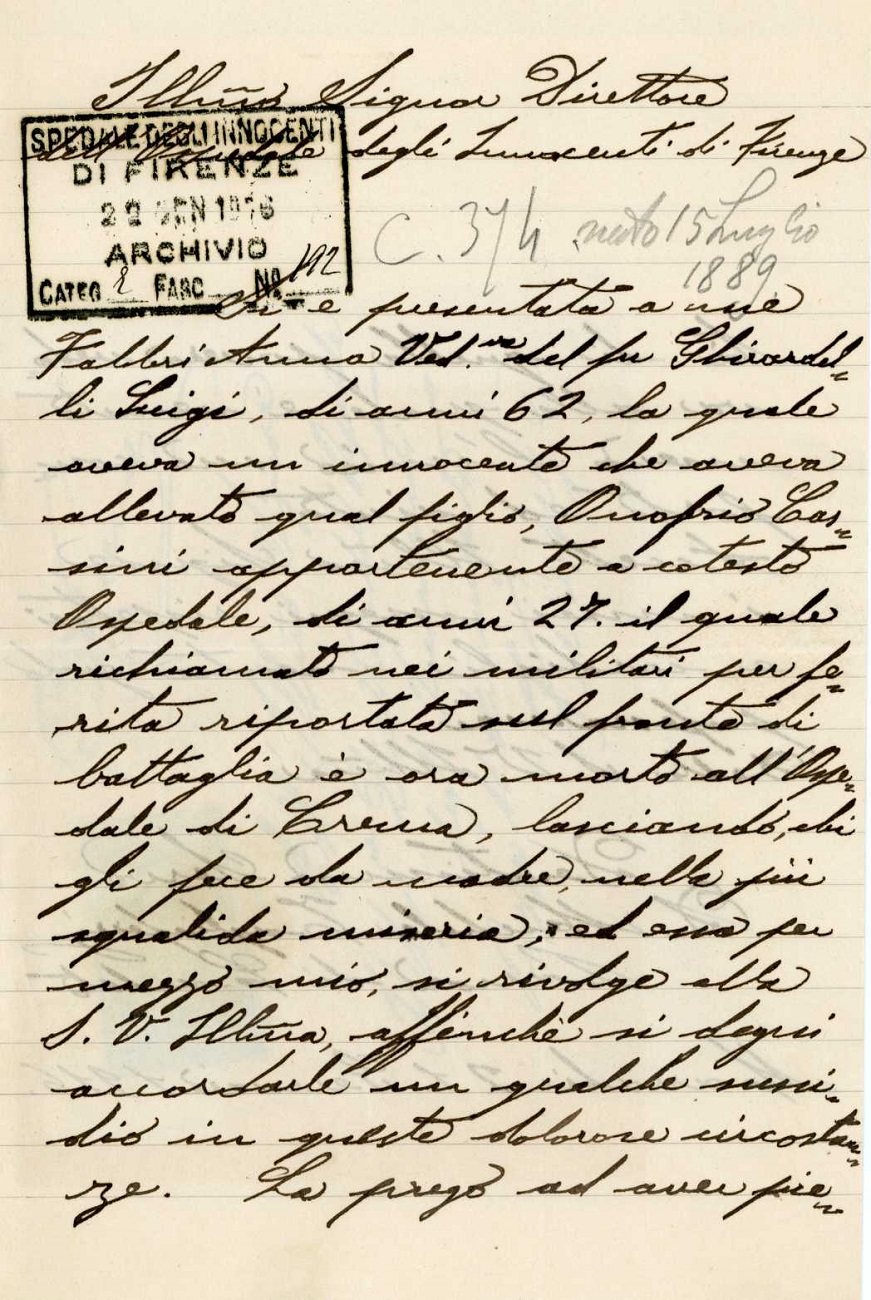 Illmo Signor Direttore
dell'Ospedale degli Innocenti di Firenze
SPEDALE DEGLI INNOCENTI
DI FIRENZE
22 GEN 1916
ARCHIVIO
CATEG 2 FASC No 192
C. 374 nato 15 Luglio
1889
Si è presentata a me
Fabbri Anna Ved.va del fu Ghirardel=
li Luigi, di anni 62, la quale
aveva un innocente che aveva
allevato qual figlio, Onofrio Cas=
sini appartenente a cotesto
Ospedale, di anni 27. il quale
richiamato nei militari per fe=
rita riportata sul fronte di
battaglia è ora morto all'Ospe=
dale di Crema, lasciando, chi
gli fece da madre, nella più
squalida miseria, ed essa per
mezzo mio, si rivolge alla
S. V. Illma, affinchè si degni
accordarle un qualche sussi=
dio in queste dolorose circostan=
ze. La prego ad aver pie=